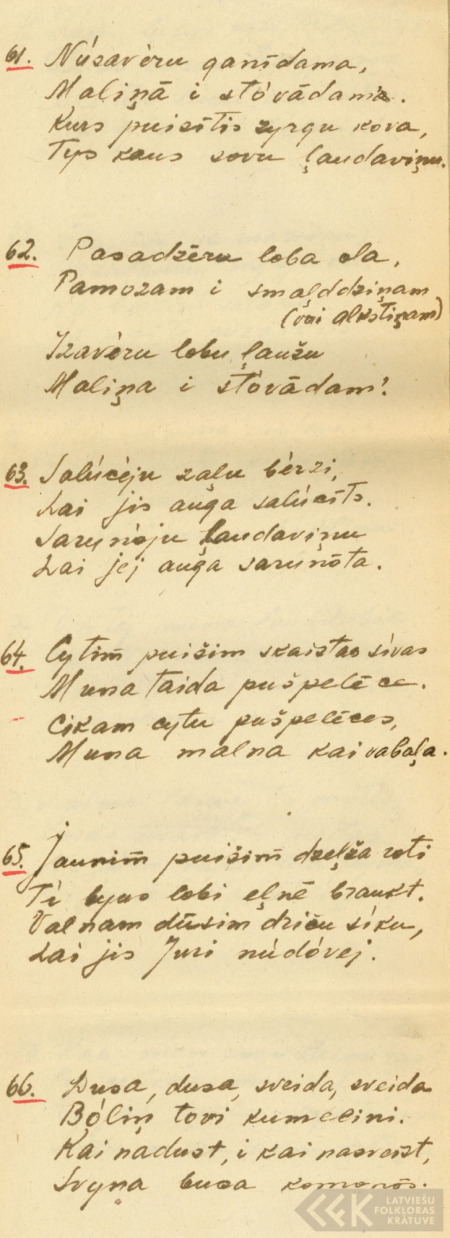 61. Núsavèru ganīdama,
Maliņā i stóvādama.
Kurs puisītis zyrgu kova,
Tys kaus sovu ļaudaviņu.
62. Pasadzēru loba ola,
Pamozam i smaļddziņam
(vai alkstiņam)
Izavèru lobu ļaužu
Maliņa i stóvādam'.
63. Salúcèju zaļu bèrzi,
Lai jis auga salúcīts.
Sarunòju ļaudaviņu
Lai jej auga sarunōta.
64. Cytim̄ puišim skaistas sívas
Muna taida pušpelēce.
Cikam cytu pušpelēces,
Muna malna kai vabaļa.
65. Jaunim̄ puišim̄ dzeļža roti
Tì byus lobi eļnē braukt.
Valnam dūsim driču síku,
Lai jis Juri núdóvej.
66. Dusa, dusa, sveida, sveida
Bóliņ tovi kumelini.
Kai nadust, i kai nasveist,
Svyna busa komonós.
LATVIEŠU
FOLKLORAS
KRĀTUVE